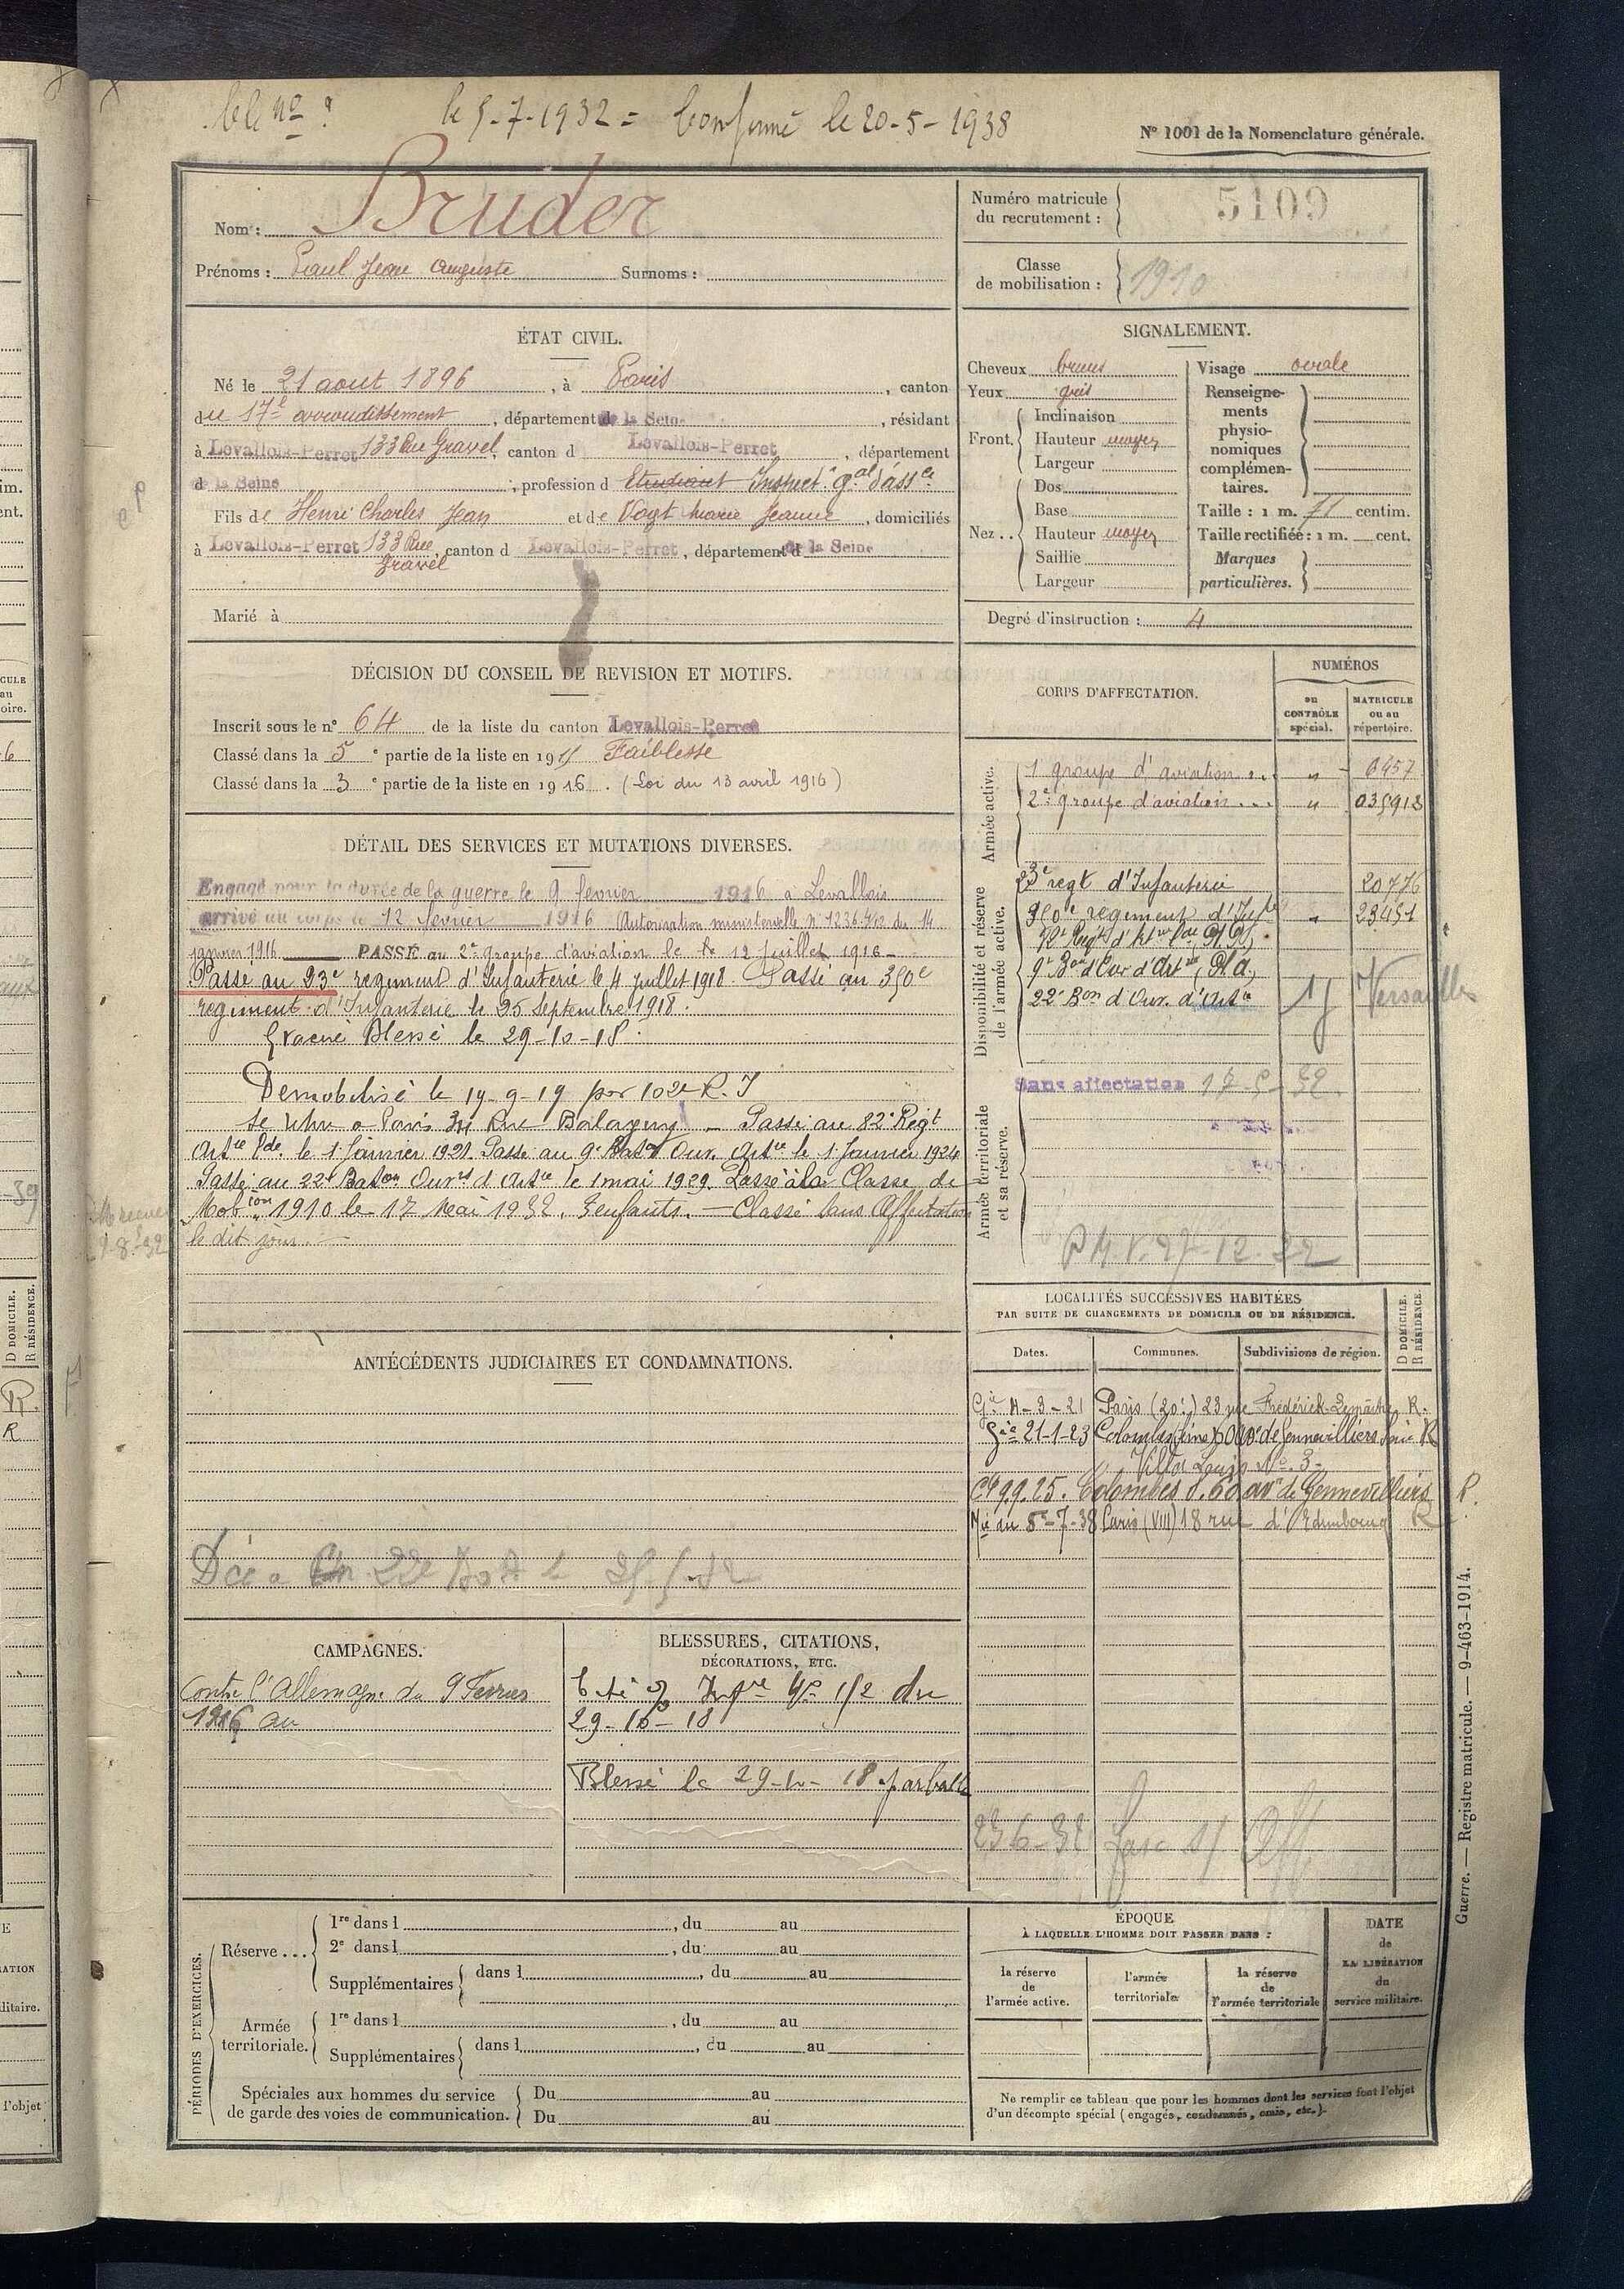 le 5-7-1932 = Confirmé le 20-5-1938
N° 1001 de la Nomenclature générale.
Nom : Bruder
Prénoms : Paul Jean Auguste Surnoms :
Numéro matricule du recrutement : 5109
Classe de mobilisation : 1910
ÉTAT CIVIL.
Né le 21 aout 1896, à Paris, canton
du 17e arrondissement, département de la Seine, résidant
à Levallois-Perret 133 Rue Gravel, canton d Levallois-Perret, département
d de la Seine, profession d Etudiant Inspect. gal d'assces
Fils de Henri Charles Jean et de Vogt Marie Jeanne, domiciliés
à Levallois-Perret 133 Rue Gravel, canton d Levallois-Perret, département d de la Seine
Marié à
SIGNALEMENT.
Cheveux bruns
Yeux gris
Front. Inclinaison
Hauteur moyen
Largeur
Nez .. Dos
Base
Hauteur moyen
Saillie
Largeur
Visage ovale
Renseignements physionomiques complémentaires.
Taille : 1 m. 71 centim.
Taille rectifiée : 1 m. cent.
Marques particulières.
Degré d'instruction : 4
DÉCISION DU CONSEIL DE REVISION ET MOTIFS.
Inscrit sous le n° 64 de la liste du canton Levallois-Perret
Classé dans la 5e partie de la liste en 1915 Faiblesse
Classé dans la 3e partie de la liste en 1916. (Loi du 13 avril 1916)
DÉTAIL DES SERVICES ET MUTATIONS DIVERSES.
Engagé pour la durée de la guerre le 9 fevrier 1916 à Levallois
arrivé au corps le 12 fevrier 1916 (Autorisation ministerielle n° du 14
janvier 1916 PASSÉ au 2e groupe d'aviation le 12 Juillet 1916
Passé au 23e regiment d'Infanterie le 4 juillet 1918. Passé au
regiment d'Infanterie le 25 Septembre 1918.
Evacué Blessé le 29-10-18.
Démobilisé le 19-9-19 par 102e R.I
se retire a Paris Rue Balagny - Passé au 82e Régt
Artie Lde. le 1 Janvier 1921. Passé au 9e Baton Ouv. Artie le 1 Janvier 1924
Passé au 22e Baton Ouvrs d'Artie le 1 mai 1929. Passé à la Classe de
Mobion 1910 le 17 Mai 1932. enfants. — Classé Sans Affectation
le dit jour.
CORPS D'AFFECTATION.
NUMÉROS
au CONTRÔLE spécial.
MATRICULE ou au répertoire.
Armée active.
1 groupe d'aviation... " 6457
2e groupe d'aviation... " 035913
Disponibilité et réserve de l'armée active.
23e regt d'Infanterie 20776
regiment d'Infie " 23451
9e Bon d'Ouv d'Artie
22e Bon d'Ouv. d'Artie Versailles
Armée territoriale et sa réserve.
Sans affectation 17-5-32.
LOCALITÉS SUCCESSIVES HABITÉES
PAR SUITE DE CHANGEMENTS DE DOMICILE OU DE RÉSIDENCE.
Dates. Communes. Subdivisions de région. D DOMICILE. R RÉSIDENCE.
4-3-21 Paris (20e) 23 rue Frédérick-Lemaître R.
21-1-23 Colombes de Gennevilliers R
Villa Louis No. 3
9.9.25. Colombes 60 avr de Gennevilliers R.
5-7-38 Paris (VIII) 18 rue d'Edimbourg R
ANTÉCÉDENTS JUDICIAIRES ET CONDAMNATIONS.
CAMPAGNES.
Contre l'Allemagne du 9 Fevrier
1916 au
BLESSURES, CITATIONS,
DÉCORATIONS, ETC.
du
29-10-18
Blessé le 29-10-18 par balle
PÉRIODES D'EXERCICES.
Réserve ... 1re dans l , du au
2e dans l , du au
Supplémentaires dans l , du au
Armée territoriale. 1re dans l , du au
Supplémentaires dans l , du au
Spéciales aux hommes du service de garde des voies de communication. Du au
Du au
ÉPOQUE
À LAQUELLE L'HOMME DOIT PASSER DANS :
la réserve de l'armée active.
l'armée territoriale
la réserve de l'armée territoriale
DATE de LA LIBÉRATION du service militaire.
Ne remplir ce tableau que pour les hommes dont les services font l'objet
d'un décompte spécial (engagés, condamnés, omis, etc.).
Guerre. — Registre matricule. — 9-463-1914.